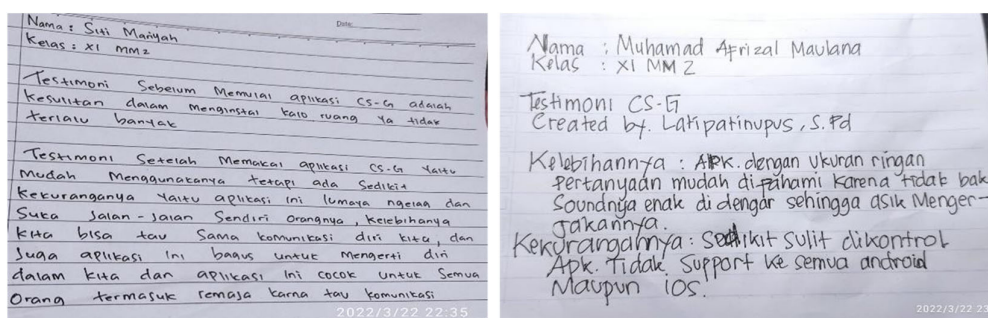 Nama : Siti Mariyah
Date:
Kelas : XI MM 2
Testimoni Sebelum Memulai aplikasi CS-G adalah
kesulitan dalam menginstal kalo ruang ya tidak
terlalu banyak
Testimoni Setelah Memakai aplikasi CS-G Yaitu
Mudah Menggunakanya tetapi ada Sedikit
kekuranganya Yaitu aplikasi ini lumaya ngelag dan
Suka Jalan-Jalan Sendiri Orangnya, kelebihanya
kita bisa tau Sama komunikasi diri kita, dan
Juga aplikasi ini bagus untuk Mengerti diri
dalam kita dan aplikasi ini cocok untuk Semua
Orang termasuk remaja karna tau komunikasi
2022/3/22 22:35
Nama : Muhamad Afrizal Maulana
Kelas : XI MM 2
Testimoni CS-G
Created by. Latipatinupus, S.Pd
Kelebihannya : APK. dengan ukuran ringan
Pertanyaan mudah di fahami karena tidak bak
Soundnya enak di dengar sehingga asik Menger-
jakannya.
Kekurangannya : Sedikit sulit dikontrol
Apk. Tidak Support ke semua android
Maupun iOS.
2022/3/22 23